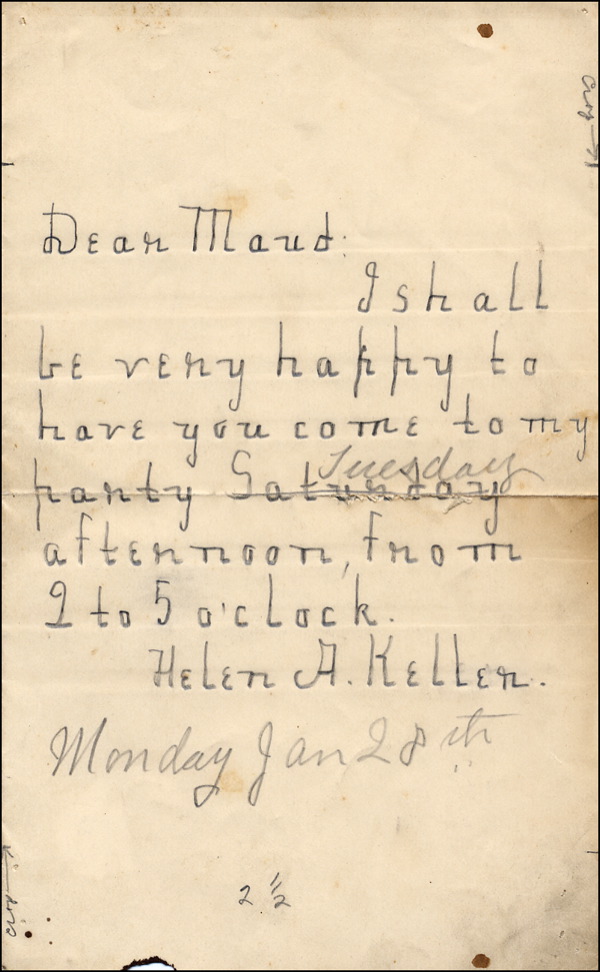 Dear Maud:
I shall
be very happy to
have you come to my
Tuesday
party Saturday
afternoon, from
2 to 5 o'clock.
Helen A. Keller.
Monday Jan 28th
2 1/2